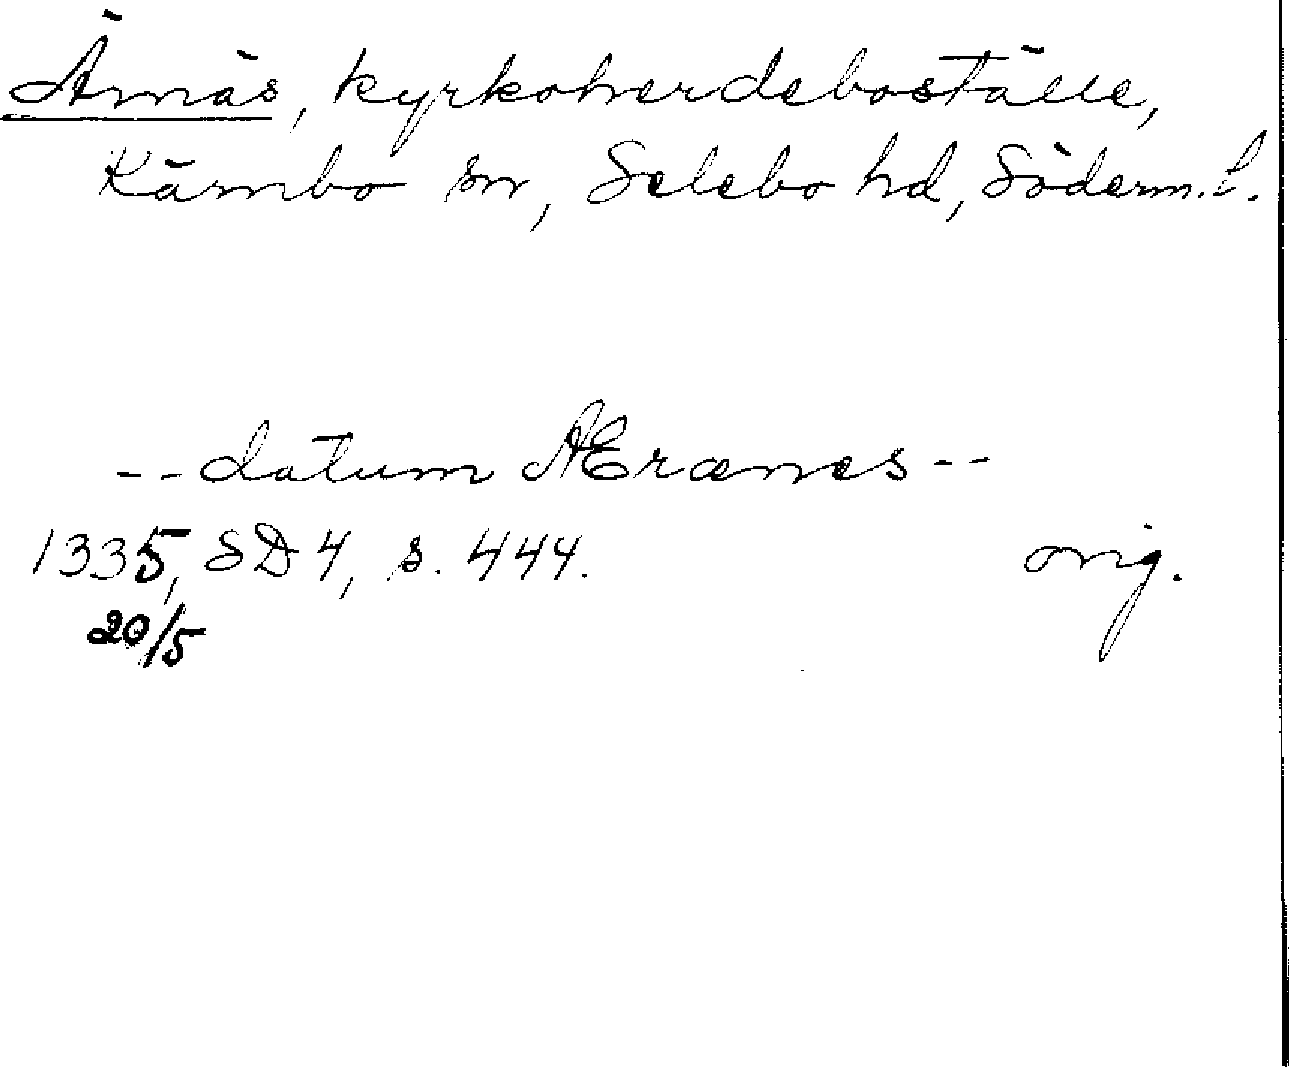 Ärnäs, kyrkoherdeboställe,
Kärnbo sn, Selebo hd, Söderm. l.
-- datum AEranæs --
1335, SD 4, s. 444. orig.
20/5